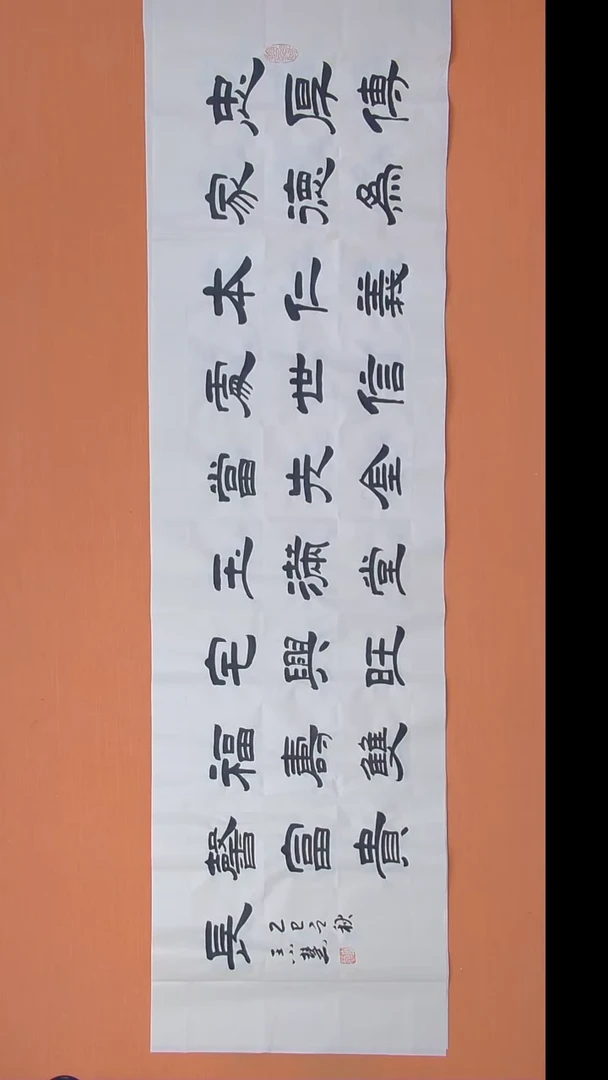 忠厚傳
家德為
本仁義
處世信
當先金
玉滿堂
宅興旺
福壽雙
馨富貴
長
乙巳之秋
王小慧